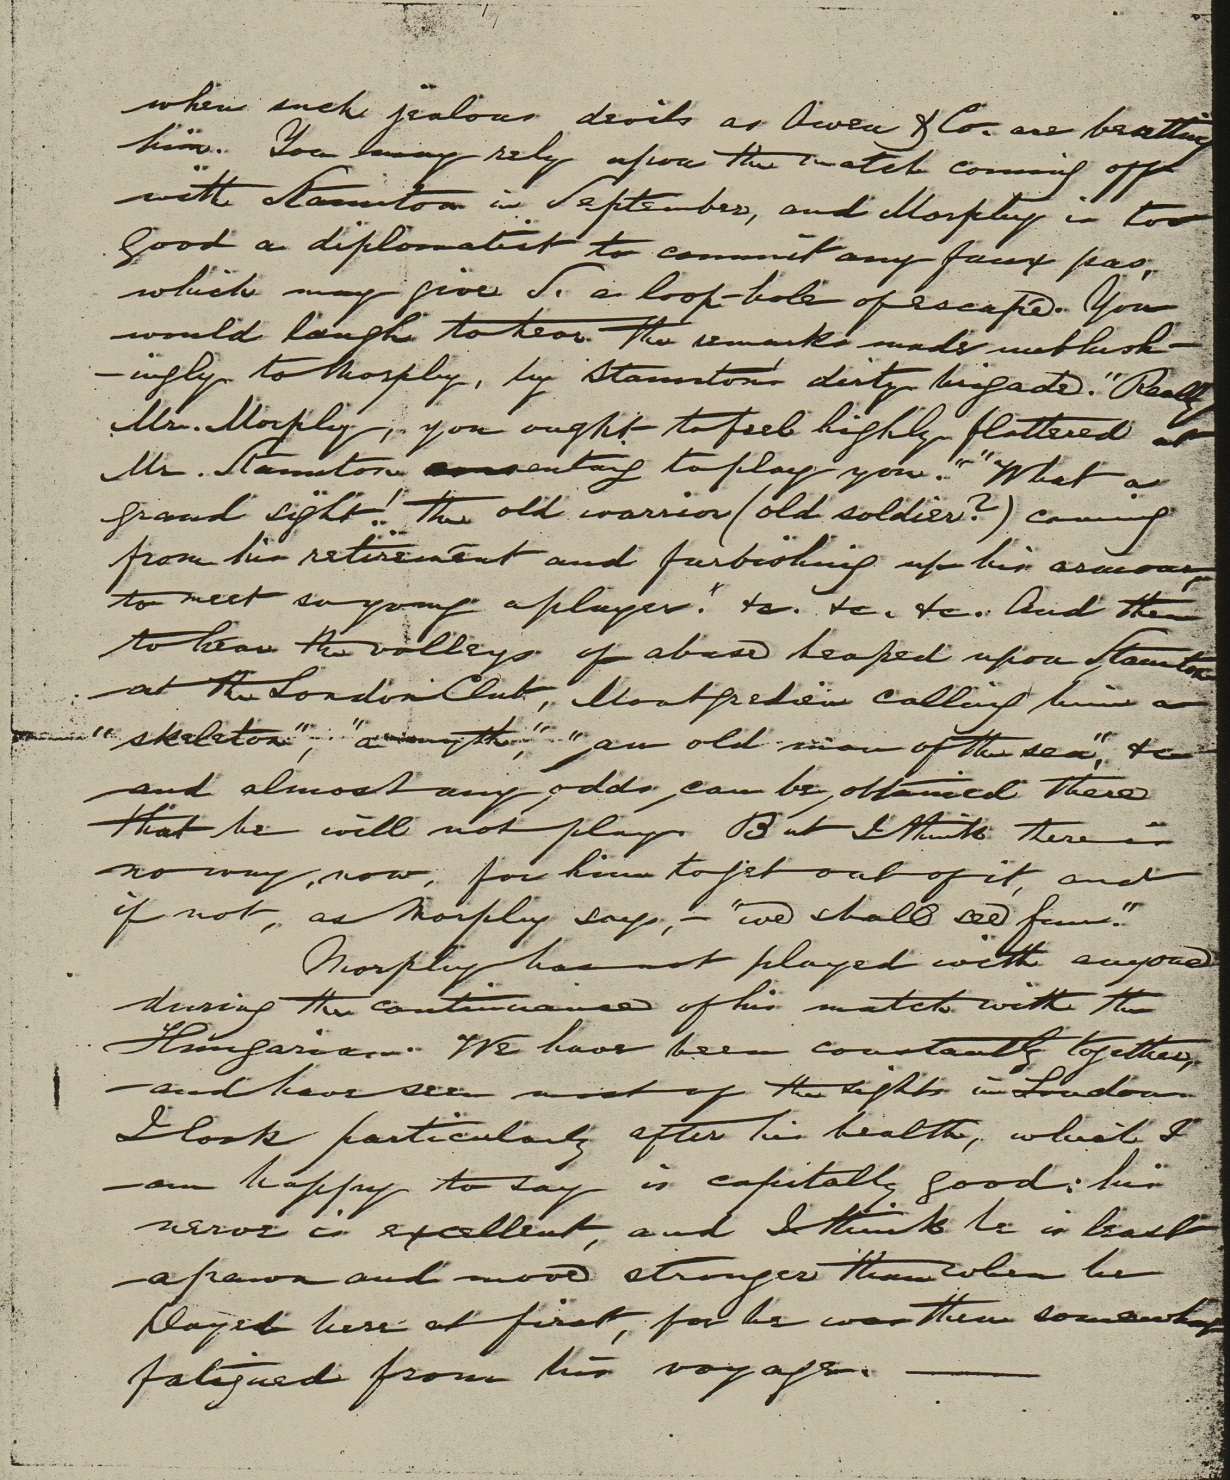 when such jealous devils as Owen & Co. are besetting
him. You may rely upon the match coming off
with Staunton in September, and Morphy is too
good a diplomatist to commit any faux pas,
which may give S. a loop-hole of escape. You
would laugh to hear the remarks made unblush-
-ingly to Morphy, by Staunton's dirty brigade. "Really
Mr. Morphy, you ought to feel highly flattered at
Mr. Staunton consenting to play you." "What a
grand sight! the old warrior (old soldier?) coming
from his retirement and furbishing up his armour,
to meet so young a player." &c. &c. &c. And then
to hear the volleys of abuse heaped upon Staunton
at the London Club, Mongredien calling him a
"skeleton", "a myth," "an old man of the sea", &c
and almost any odds can be obtained there
that he will not play. But I think there is
no way, now, for him to get out of it, and
if not, as Morphy says, - "we shall see fun."
Morphy has not played with anyone
during the continuance of his match with the
Hungarian. We have been constantly together,
and have seen most of the sights in London.
I look particularly after his health, which I
am happy to say is capitally good: his
nerve is excellent, and I think he is least
a pawn and move stronger than when he
played here at first, for he was then somewhat
fatigued from his voyage. —